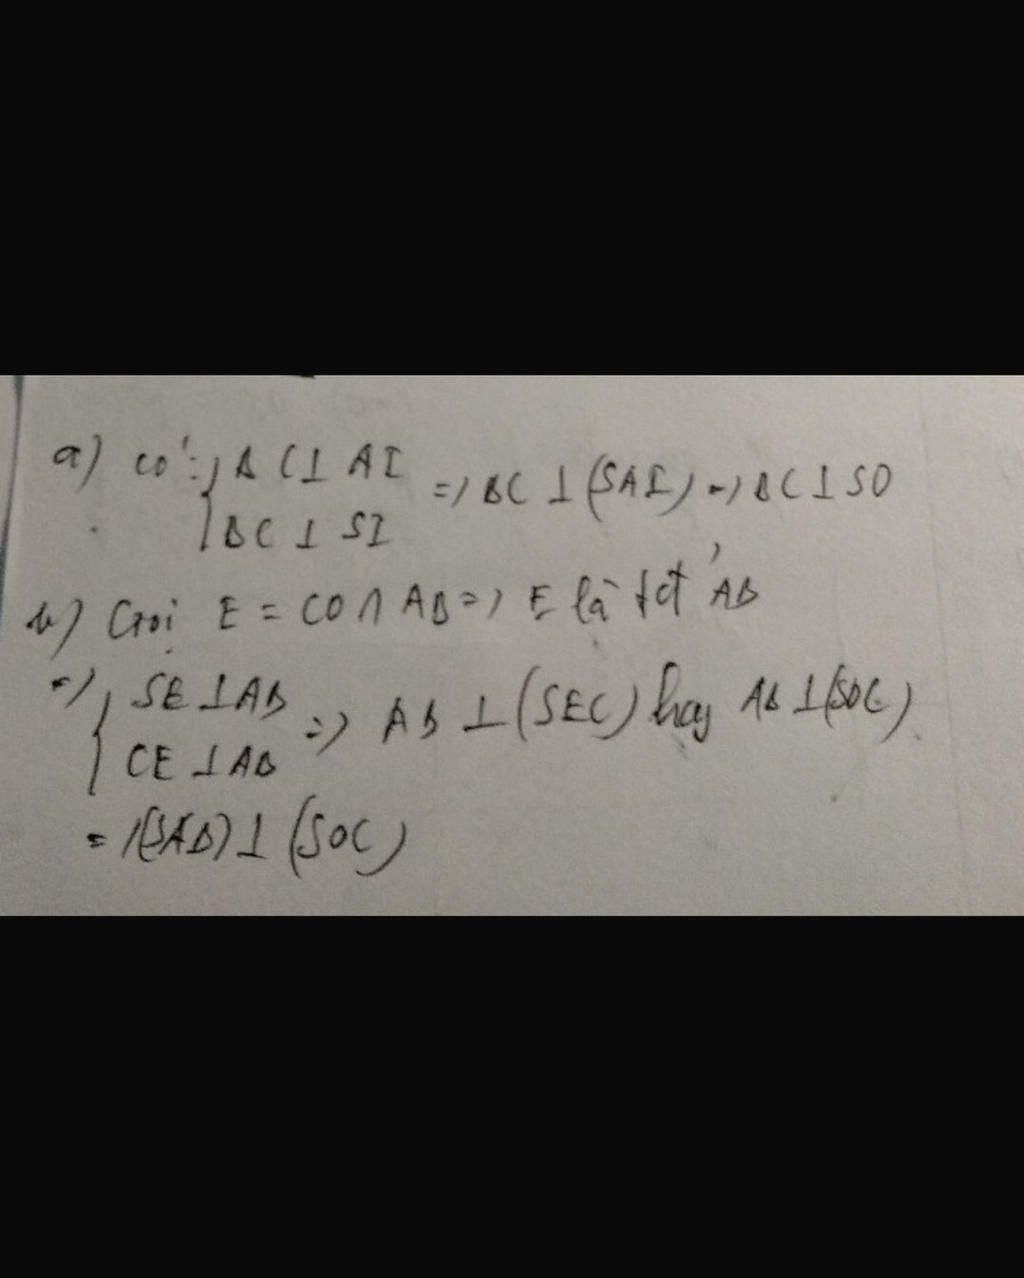 a) có: { BC ⊥ AI => BC ⊥ (SAI) => BC ⊥ SO
BC ⊥ SI
b) Gọi E = CO ∩ AB => E là tđ AB
=> { SE ⊥ AB => AB ⊥ (SEC) hay AB ⊥ (SOC)
CE ⊥ AB
=> (SAB) ⊥ (SOC)